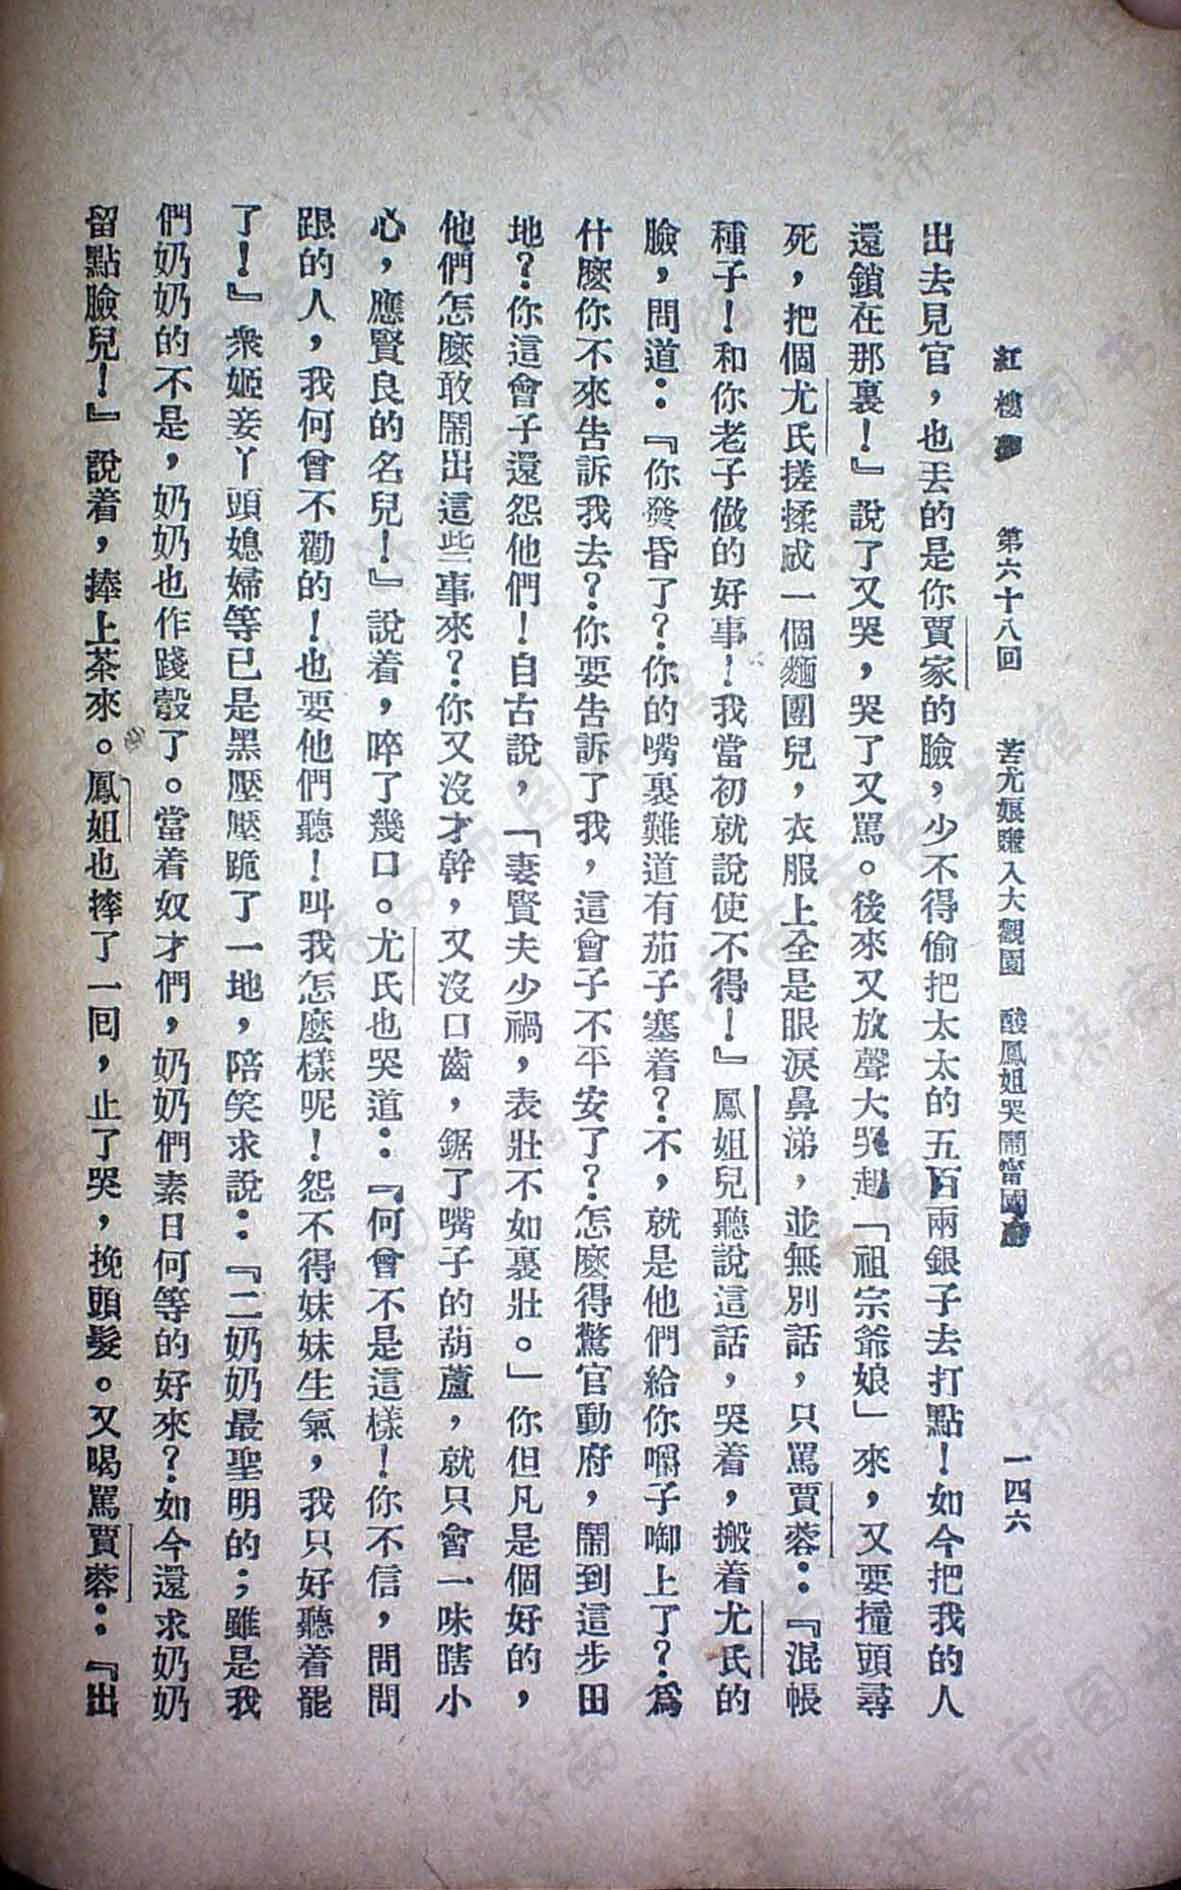 紅樓夢 第六十八回 苦尤娘賺入大觀園 酸鳳姐哭鬧甯國府 一四六
出去見官，也丟的是你賈家的臉，少不得偷把太太的五百兩銀子去打點！如今把我的人
還鎖在那裏！』說了又哭，哭了又罵。後來又放聲大哭起「祖宗爺娘」來，又要撞頭尋
死，把個尤氏搓揉成一個麵團兒，衣服上全是眼淚鼻涕，並無別話，只罵賈蓉：『混帳
種子！和你老子做的好事！我當初就說使不得！』鳳姐兒聽說這話，哭着，搬着尤氏的
臉，問道：『你發昏了？你的嘴裏難道有茄子塞着？不，就是他們給你嚼子啣上了？爲
什麼你不來告訴我去？你要告訴了我，這會子不平安了？怎麼得驚官動府，鬧到這步田
地？你這會子還怨他們！自古說，「妻賢夫少禍，表壯不如裏壯。」你但凡是個好的，
他們怎麼敢鬧出這些事來？你又沒才幹，又沒口齒，鋸了嘴子的葫蘆，就只會一味瞎小
心，應賢良的名兒！』說着，啐了幾口。尤氏也哭道：『何曾不是這樣！你不信，問問
跟的人，我何曾不勸的！也要他們聽！叫我怎麼樣呢！怨不得妹妹生氣，我只好聽着罷
了！』衆姬妾丫頭媳婦等已是黑壓壓跪了一地，陪笑求說：『二奶奶最聖明的；雖是我
們奶奶的不是，奶奶也作踐彀了。當着奴才們，奶奶們素日何等的好來？如今還求奶奶
留點臉兒！』說着，捧上茶來。鳳姐也摔了一回，止了哭，挽頭髮。又喝罵賈蓉：『出
濟南市图书馆